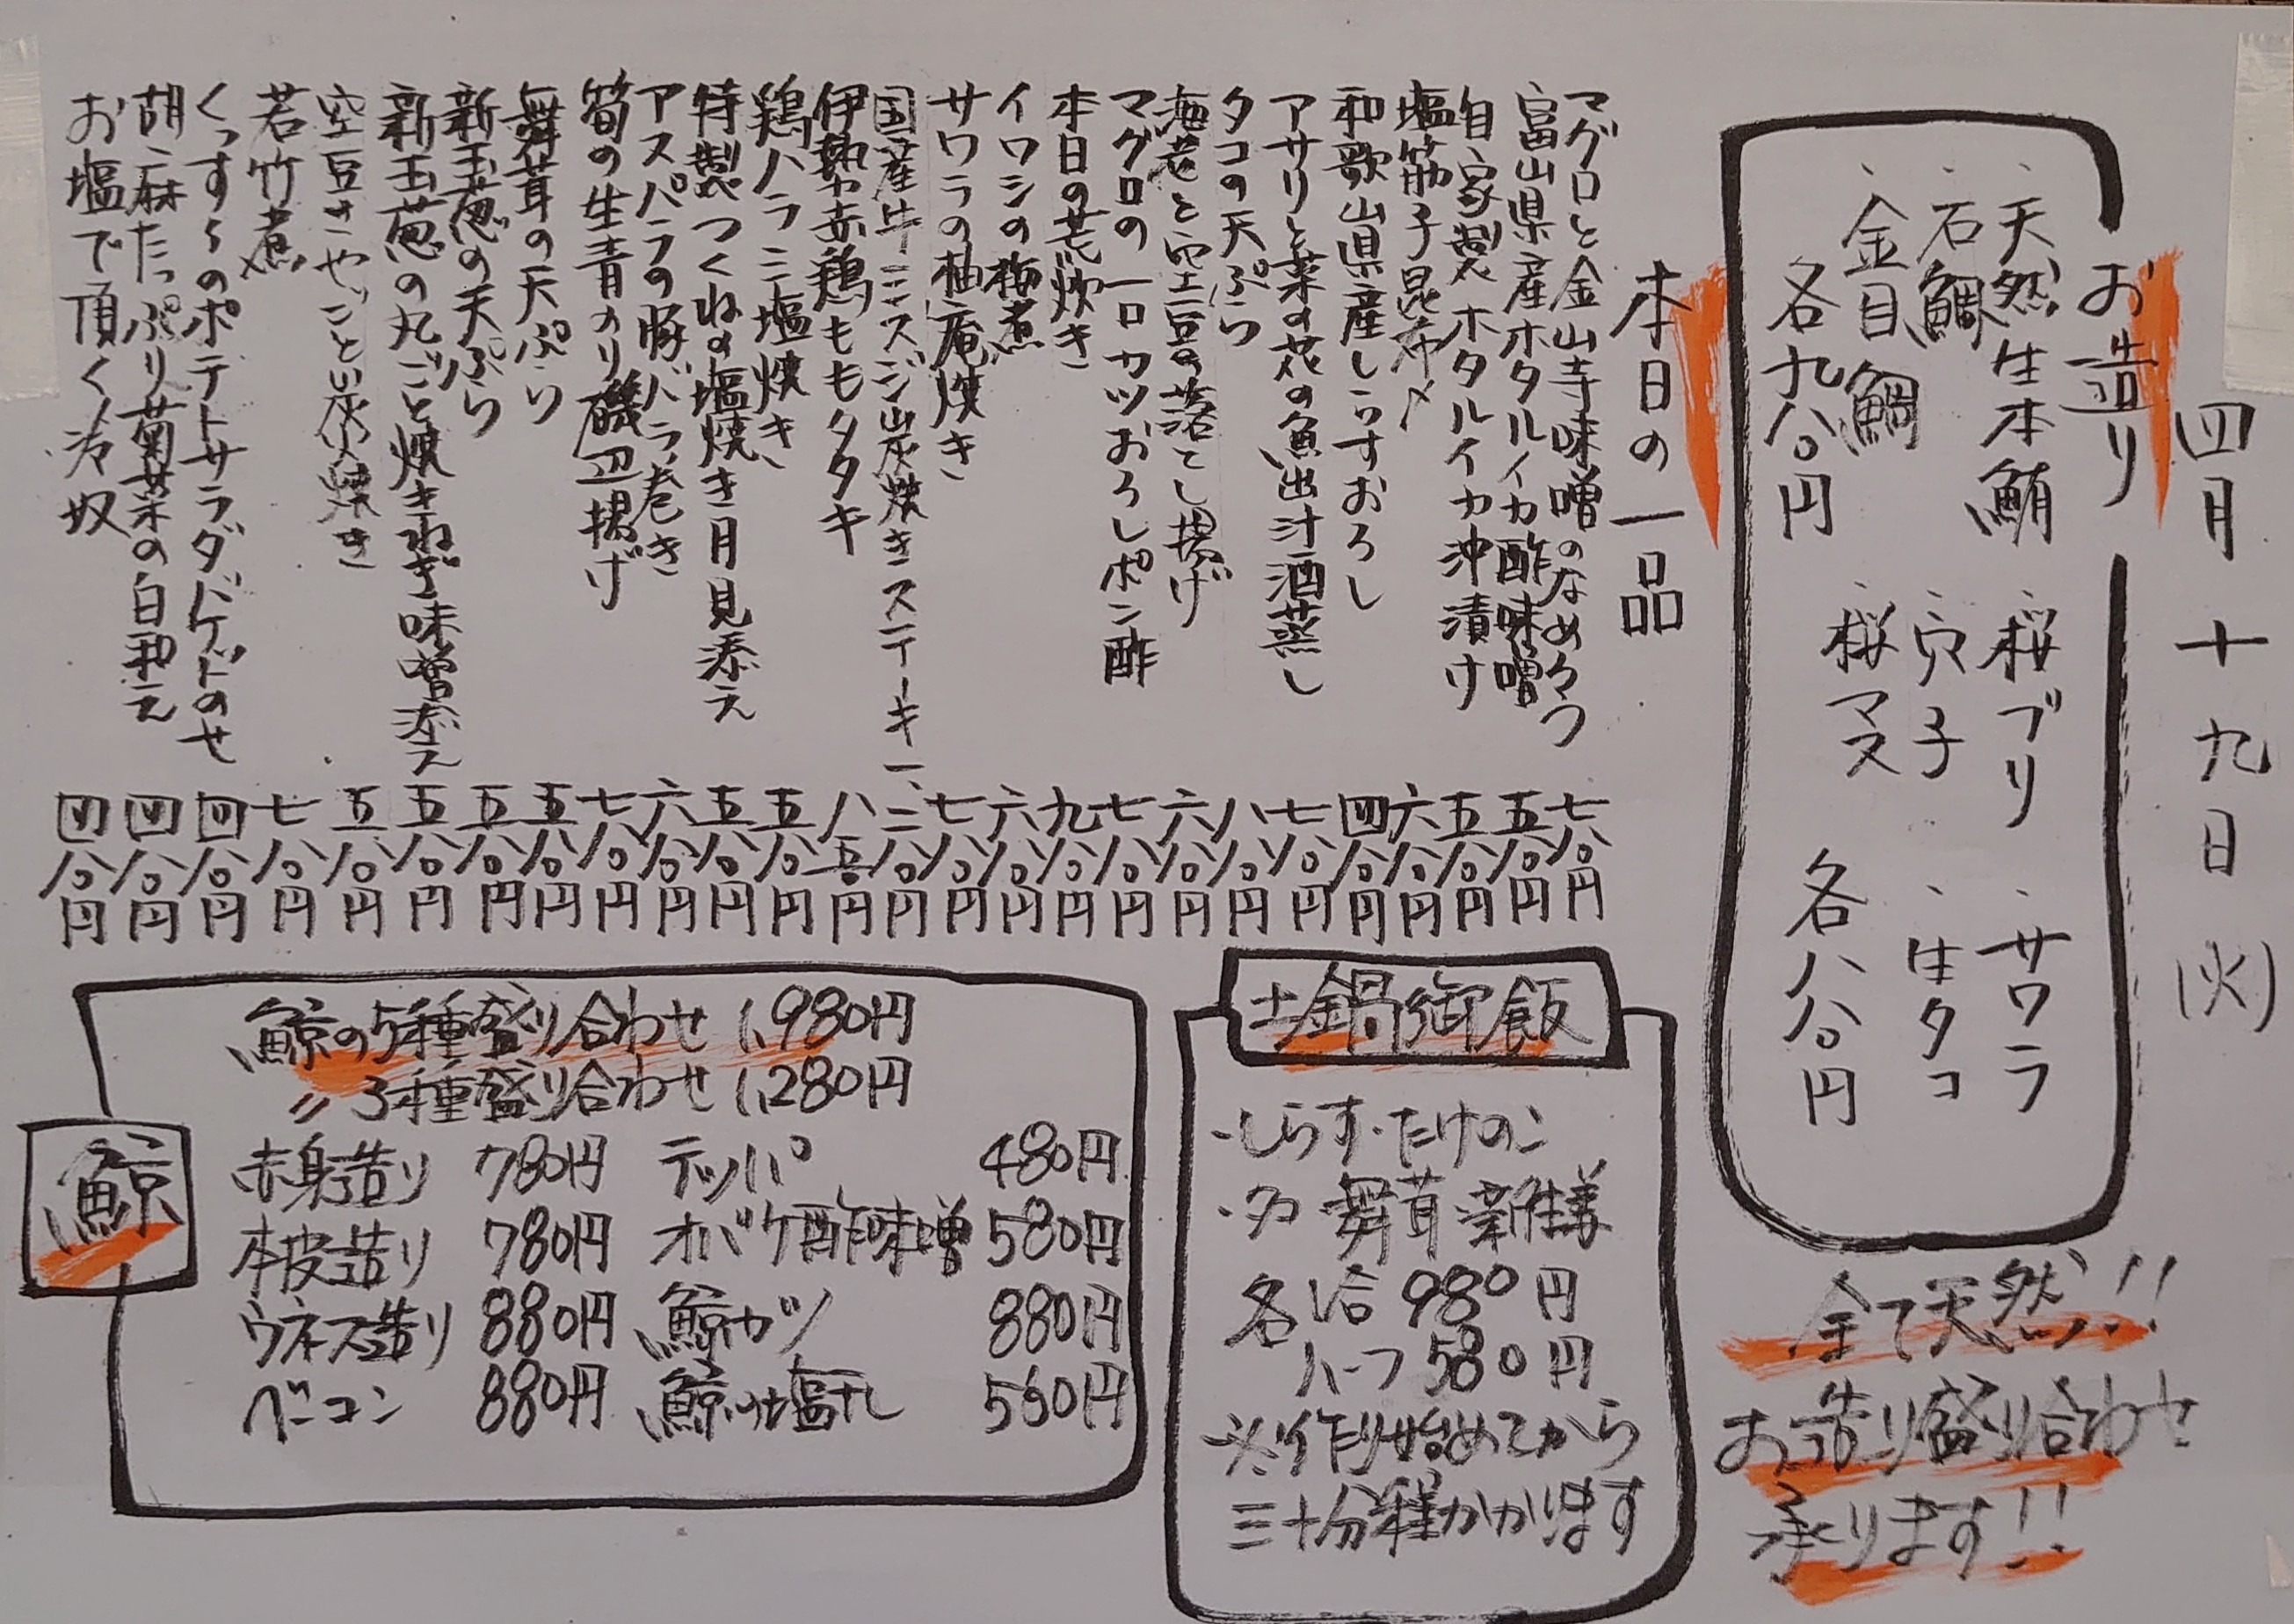 四月十九日(火)
お造り
・天然生本鮪
・石鯛
・金目鯛
各九八〇円
・桜ブリ
・穴子
・桜マス
・サワラ
・生タコ
各八八〇円
全て天然!!
お造り盛り合わせ
承ります!!
本日の一品
マグロと金山寺味噌のなめろう 七八〇円
富山県産ホタルイカ酢味噌 五八〇円
自家製ホタルイカ沖漬け 五八〇円
塩筋子昆布〆 六八〇円
和歌山県産しらすおろし 四八〇円
アサリと菜の花の魚出汁酒蒸し 七八〇円
タコの天ぷら 八八〇円
海老と空豆の落とし揚げ 六八〇円
マグロの一口カツおろしポン酢 七八〇円
本日の荒炊き 九八〇円
イワシの梅煮 六八〇円
サワラの柚庵焼き 七八〇円
国産牛ミスジ炭焼きステーキ 一、二八〇円
伊勢赤鶏ももタタキ 八八〇円
鶏ハラミ塩焼き 五八〇円
特製つくねの塩焼き月見添え 五八〇円
アスパラの豚バラ巻き 六八〇円
筍の生青のり磯辺揚げ 七八〇円
舞茸の天ぷら 五八〇円
新玉葱の天ぷら 五八〇円
新玉葱の丸ごと焼きねぎ味噌添え 五八〇円
空豆さやごと炭火焼き 五八〇円
若竹煮 七八〇円
くっすぅのポテトサラダバゲットのせ 四八〇円
胡麻たっぷり菊菜の白和え 四八〇円
お塩で頂く冷奴 四八〇円
土鍋御飯
・しらす・たけのこ
・タコ・舞茸・新生姜
各1合 980円
ハーフ 580円
※作り始めてから
三十分程かかります
鯨
鯨の5種盛り合わせ 1,980円
〃 3種盛り合わせ 1,280円
赤身造り 780円 テッパ 480円
本皮造り 780円 オバケ酢味噌 580円
ウネス造り 880円 鯨カツ 880円
ベーコン 880円 鯨の塩タレ 580円